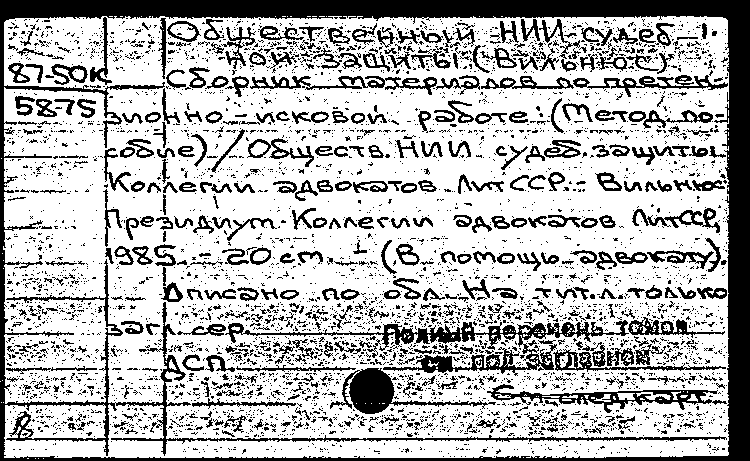 Общественный НИИ судеб- 1.
ной защиты (Вильнюс).
87-50К
Сборник материалов по претен-
5875
зионно-исковой работе: (Метод. по-
собие) / Обществ. НИИ судеб. защиты
Коллегии адвокатов ЛитССР. - Вильнюс:
Президиум Коллегии адвокатов ЛитССР,
1985. - 20 см. - (В помощь адвокату).
Описано по обл. На тит. л. только
загл. сер.
Полный перечень томов
см. под заглавием
ДСП.
См. след. карт.
В